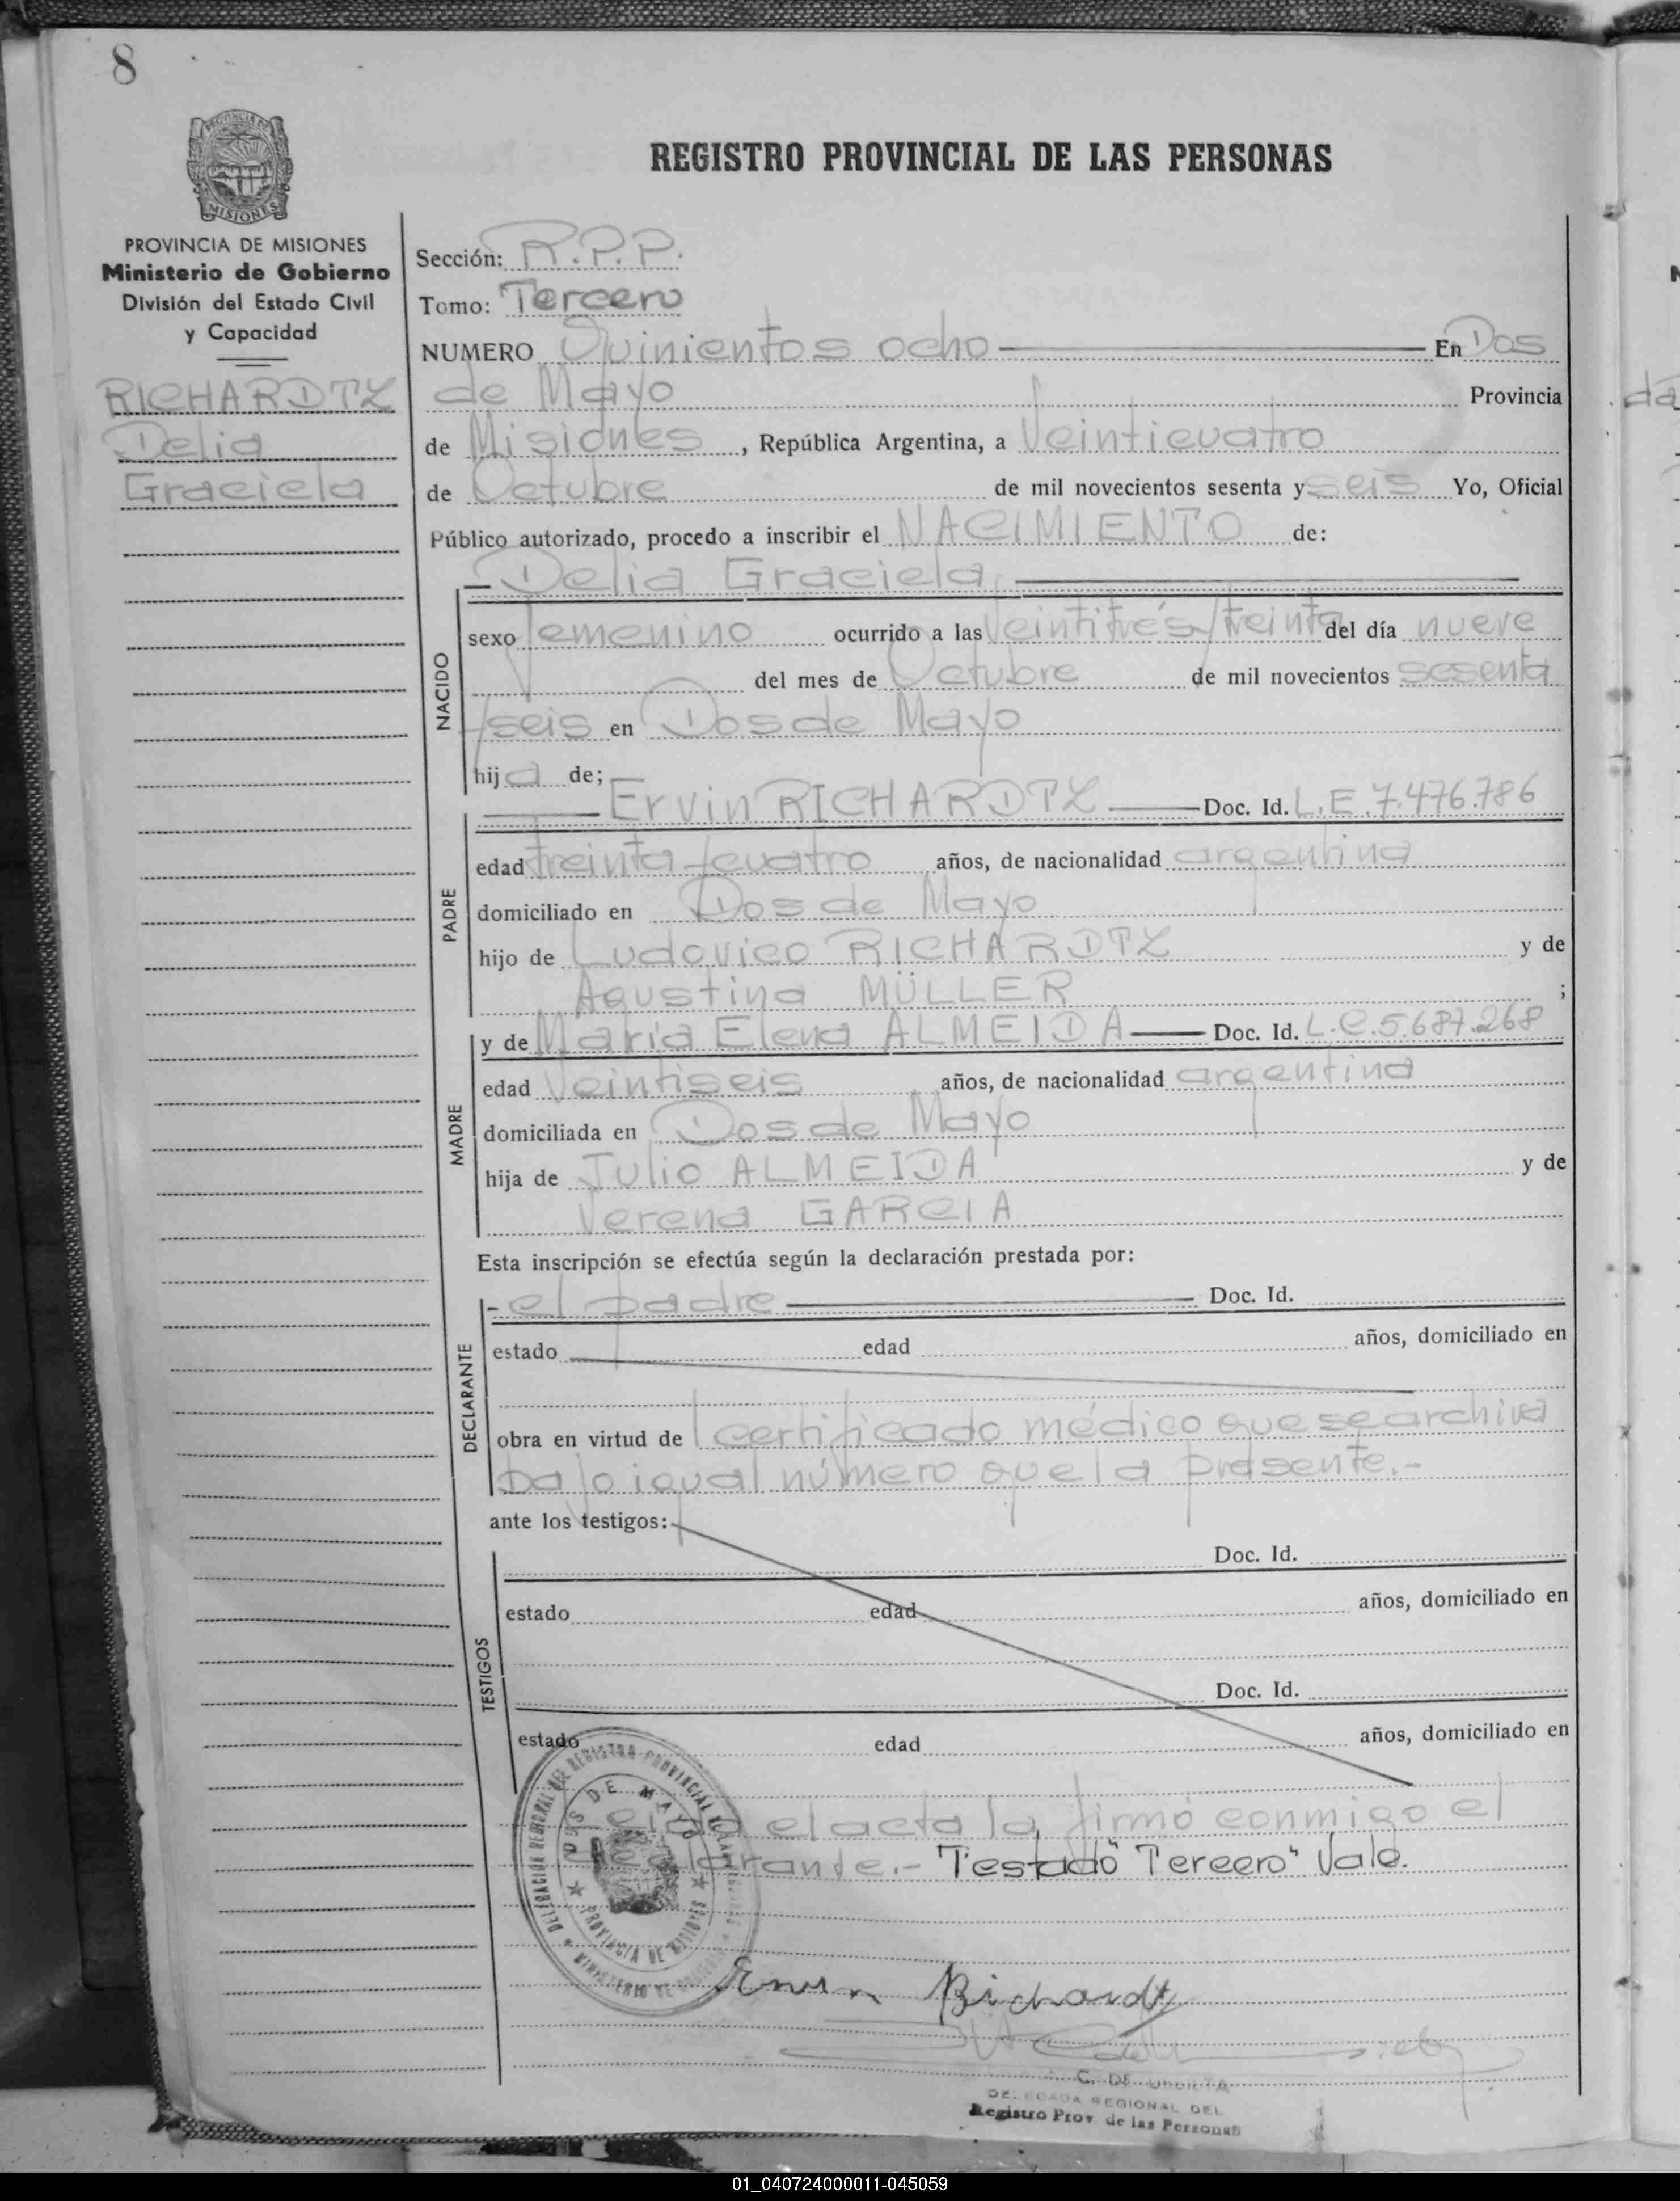 8
PROVINCIA DE
MISIONES
REGISTRO PROVINCIAL DE LAS PERSONAS
PROVINCIA DE MISIONES
Ministerio de Gobierno
División del Estado Civil
y Capacidad
RICHARDTZ
Delia
Graciela
Sección: R.P.P.
Tomo: Tercero
NUMERO Quinientos ocho En Dos
de Mayo Provincia
de Misiones, República Argentina, a Veinticuatro
de Octubre de mil novecientos sesenta y seis Yo, Oficial
Público autorizado, procedo a inscribir el NACIMIENTO de:
Delia Graciela
NACIDO
sexo femenino ocurrido a las veintitrés/treinta del día nueve
del mes de Octubre de mil novecientos sesenta
/seis en Dos de Mayo
hija de;
PADRE
Ervin RICHARDTZ Doc. Id. L.E. 7.476.786
edad treinta/cuatro años, de nacionalidad argentina
domiciliado en Dos de Mayo
hijo de Ludovico RICHARDTZ y de
Agustina MÜLLER ;
MADRE
y de María Elena ALMEIDA Doc. Id. L.C. 5.687.268
edad Veintiseis años, de nacionalidad argentina
domiciliada en Dos de Mayo
hija de Julio ALMEIDA y de
Verena GARCIA
Esta inscripción se efectúa según la declaración prestada por:
DECLARANTE
- el padre Doc. Id.
estado edad años, domiciliado en
obra en virtud de certificado médico que se archiva
bajo igual número que la presente.-
ante los testigos:
TESTIGOS
Doc. Id.
estado edad años, domiciliado en
Doc. Id.
estado edad años, domiciliado en
DELEGACIÓN REGIONAL DEL REGISTRO PROVINCIAL
DOS DE MAYO
PROVINCIA DE MISIONES
MINISTERIO DE
Leída el acta la firmó conmigo el
declarante.- "Testado" Tercero" Vale.
Ervin Richardtz
C. DE
DELEGADA REGIONAL DEL
Registro Prov. de las Personas
01_040724000011-045059